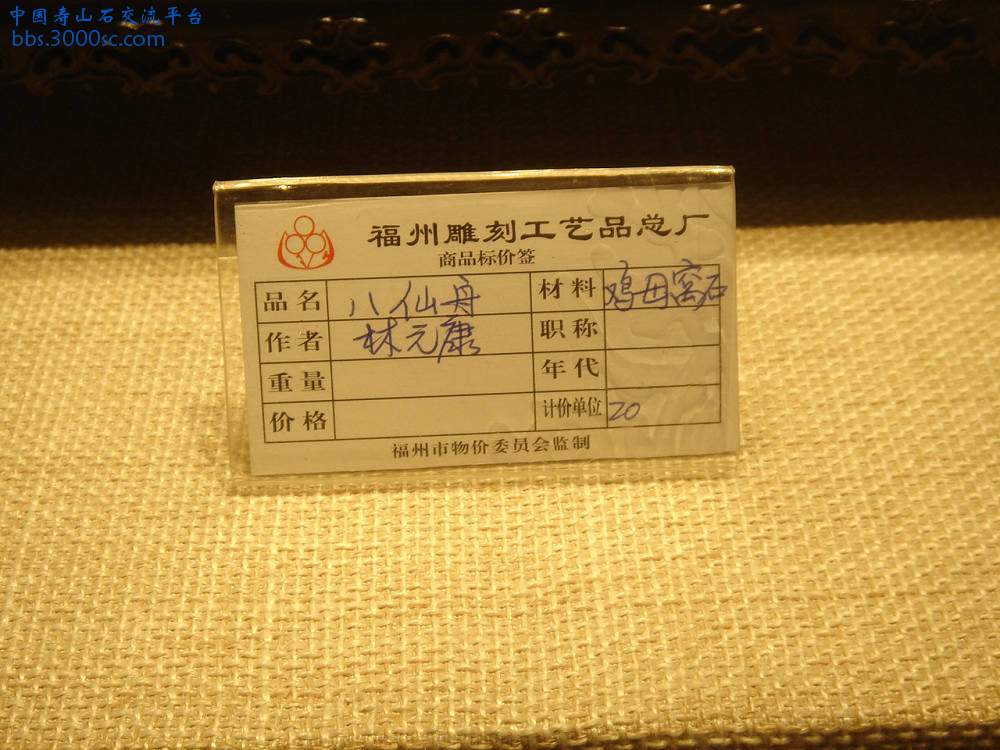 中国寿山石交流平台
bbs.3000sc.com
福州雕刻工艺品总厂
商品标价签
品名 八仙舟 材料 鸡母窝石
作者 林元康 职称
重量 年代
价格 计价单位 20
福州市物价委员会监制